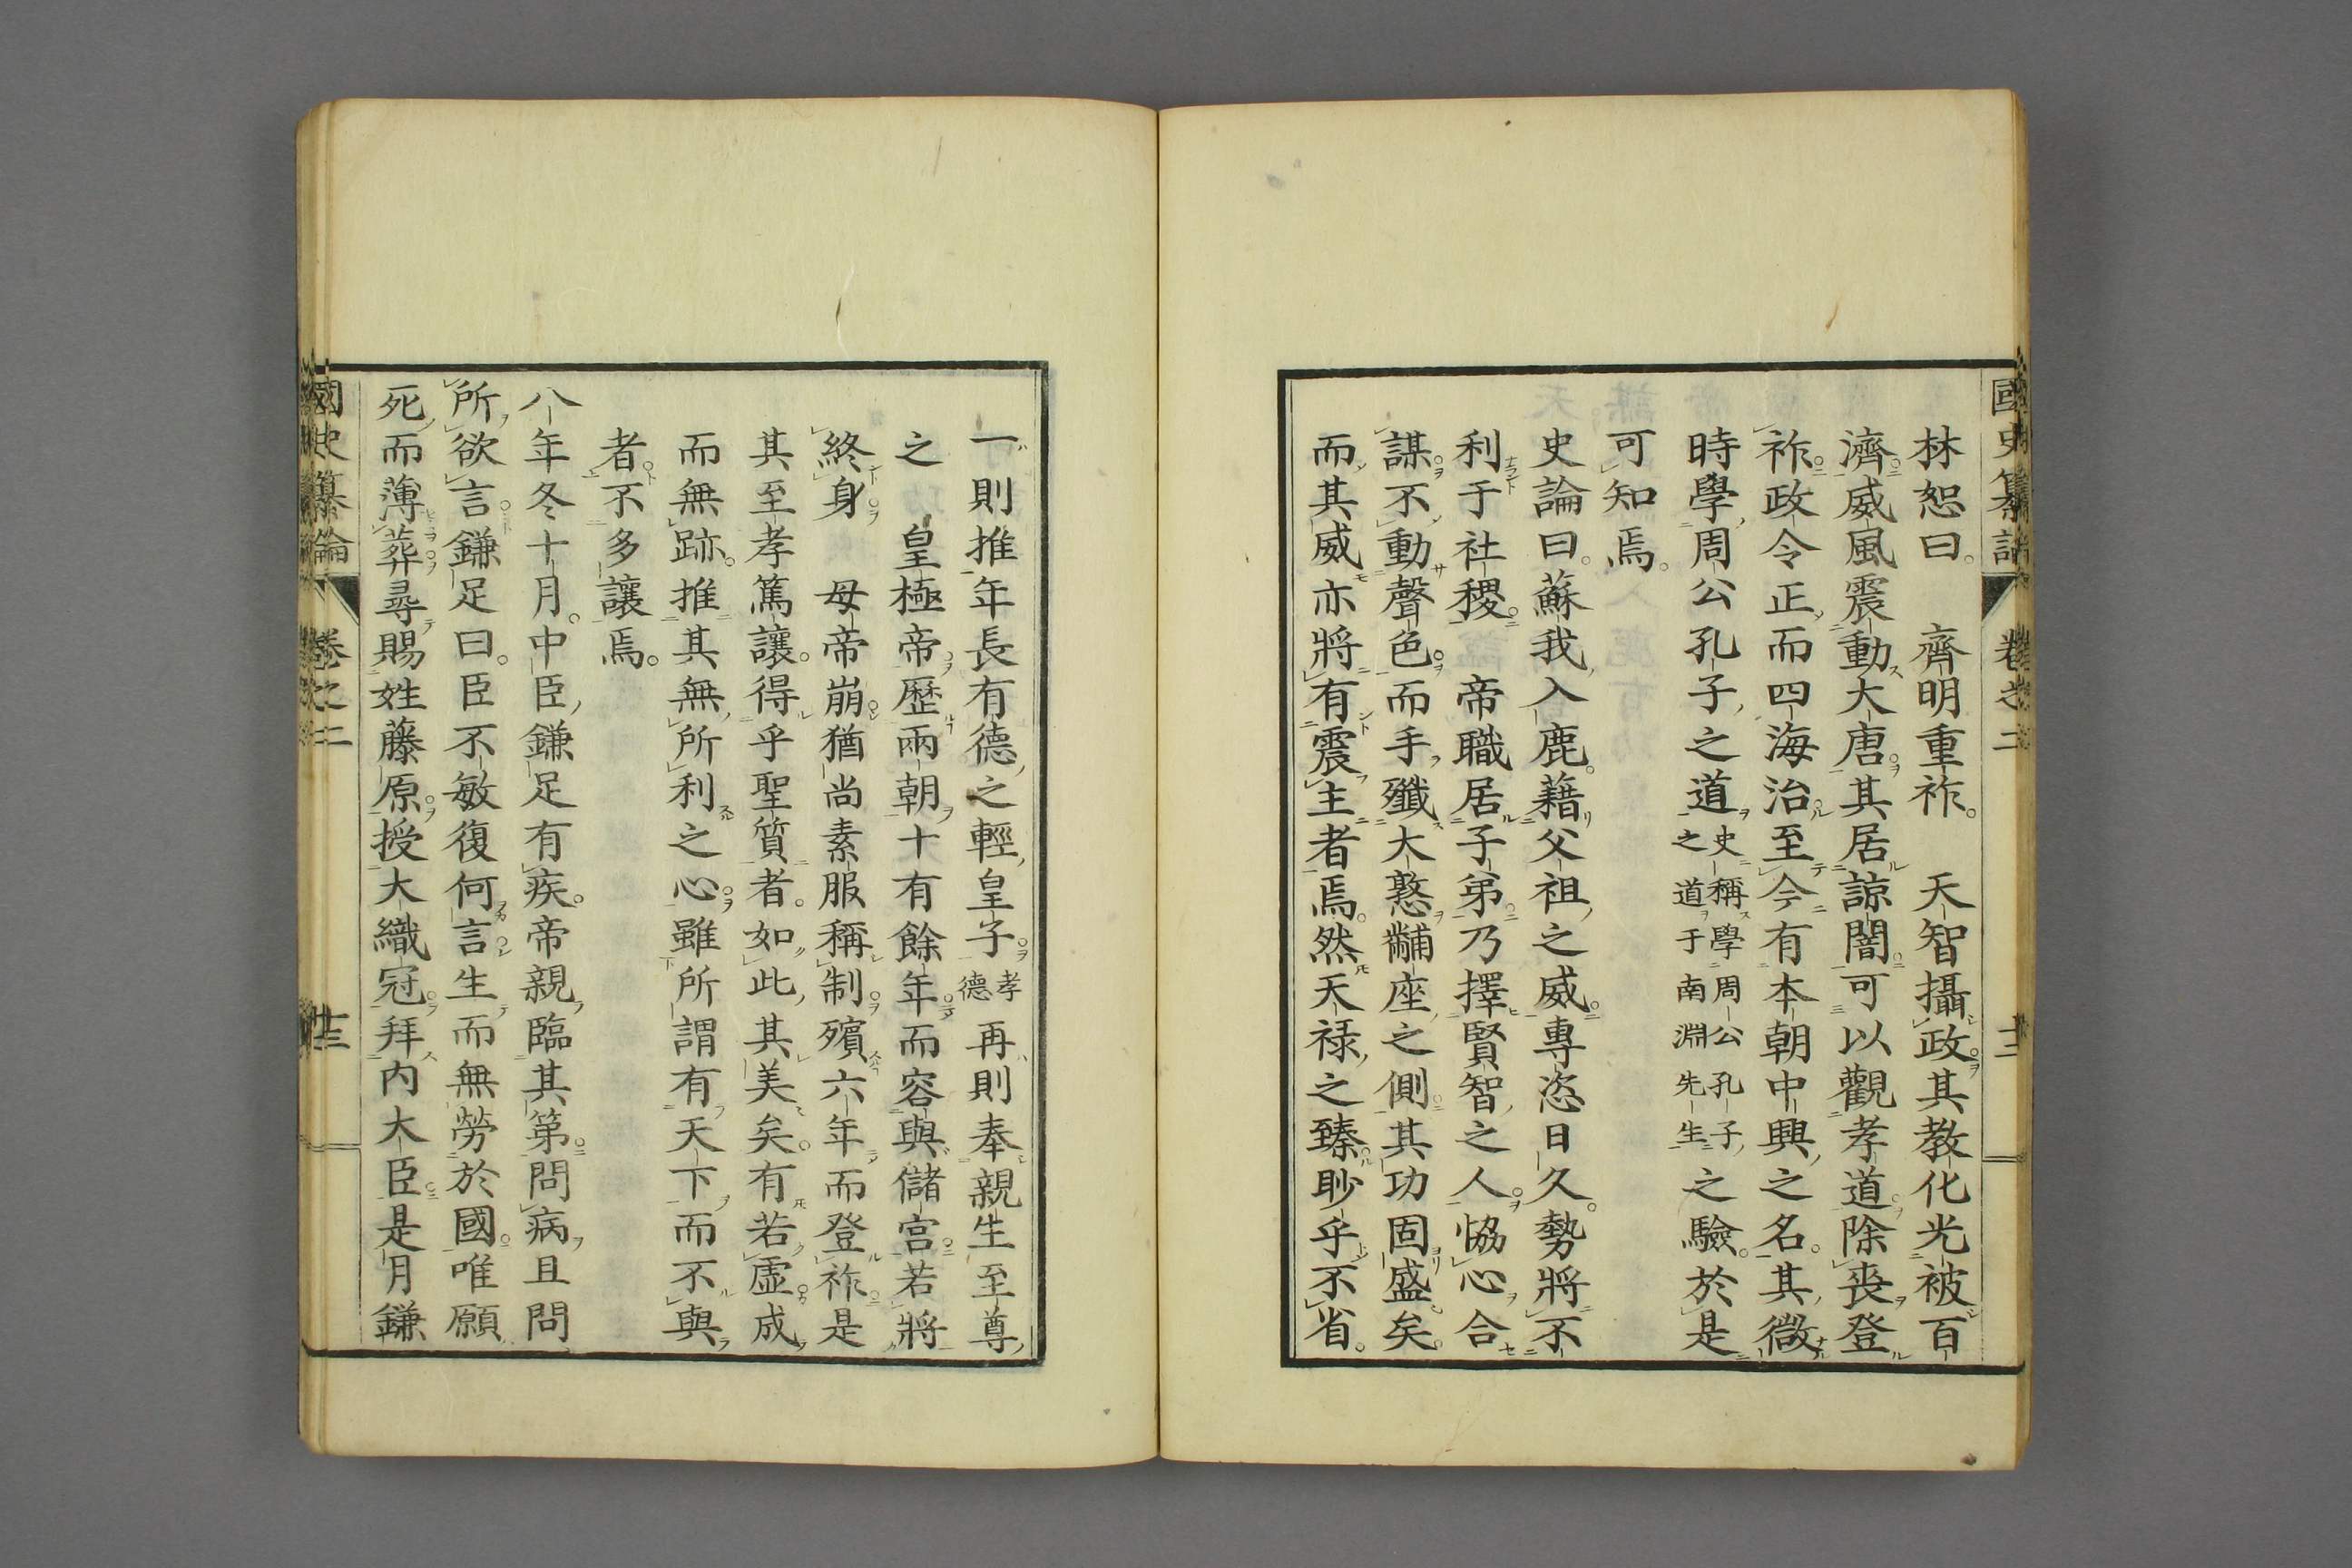 國史纂論 卷之二
林恕曰。 齊明重祚。 天智攝政。其教化光被百
濟。威風震動大唐。其居諒闇。可以觀孝道。除喪登
祚。政令正而四海治。至今有本朝中興之名。其微
時學周公孔子之道 史稱學周公孔子之道于南淵先生 之驗。於是
可知焉。
史論曰。蘇我入鹿。藉父祖之威。專恣日久。勢將不
利于社稷。 帝職居子弟。乃擇賢智之人。恊心合
謀。不動聲色。而手殲大憝黼座之側。其功固盛矣。
而其威亦將有震主者焉。然天祿之臻眇乎不省。
一則推年長有德之輕皇子。 孝德 再則奉親生至尊
之 皇極帝。歷兩朝十有餘年。而容與儲宮。若將
終身。 母帝崩。猶尚素服稱制。殯六年而登祚。是
其至孝篤讓。得乎聖質者。如此其美矣。有若虛成
而無跡。推其無所利之心。雖所謂有天下而不與
者。不多讓焉。
八年冬十月。中臣鎌足有疾。帝親臨其第。問病且問
所欲言。鎌足曰。臣不敏復何言。生而無勞於國。唯願
死而薄葬。尋賜姓藤原。授大織冠。拜內大臣。是月鎌
國史纂論 卷之二 十三